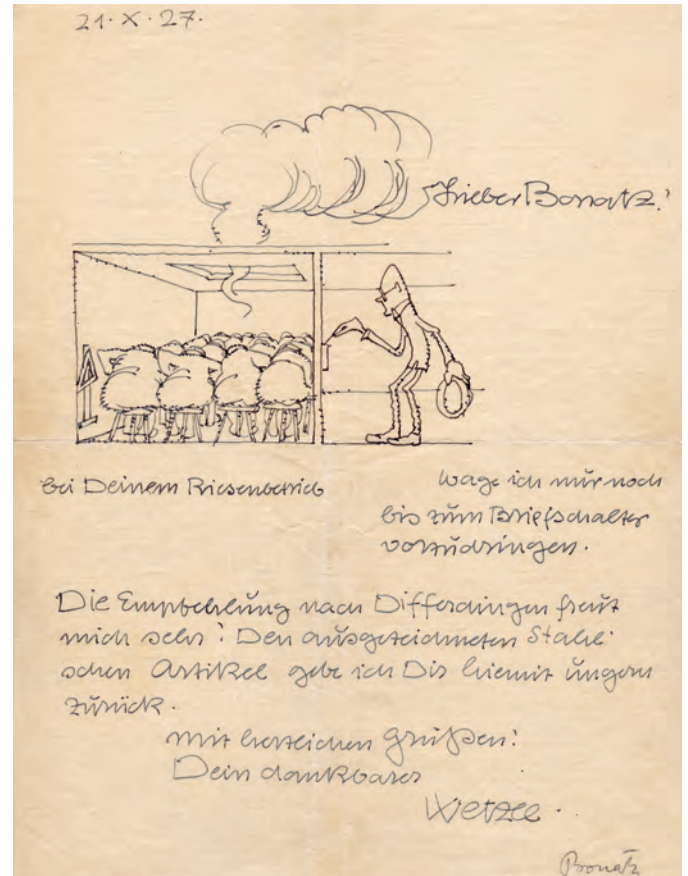 21. X. 27.
Lieber Bonatz!
bei Deinem Riesenbetrieb
wage ich nur noch
bis zum Briefschalter
vorzudringen.
Die Empfehlung nach Differdingen freut
mich sehr! Den ausgezeichneten Stahl-
schen Artikel gebe ich Dir hiemit ungern
zurück.
mit herzlichen Grüßen!
Dein dankbarer
Wetzel.
Bonatz